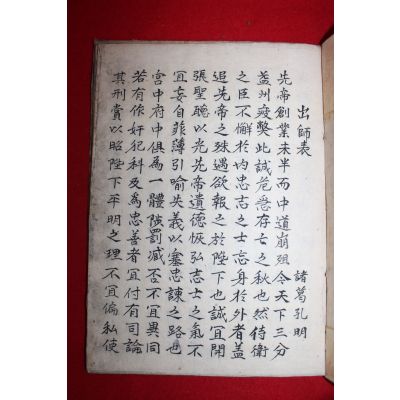 出師表
諸葛孔明
先帝創業未半而中道崩殂今天下三分
益州疲弊此誠危急存亡之秋也然侍衛
之臣不懈於內忠志之士忘身於外者蓋
追先帝之殊遇欲報之於陛下也誠宜開
張聖聰以光先帝遺德恢弘志士之氣不
宜妄自菲薄引喻失義以塞忠諫之路也
宮中府中俱為一體陟罰臧否不宜異同
若有作奸犯科及為忠善者宜付有司論
其刑賞以昭陛下平明之理不宜偏私使